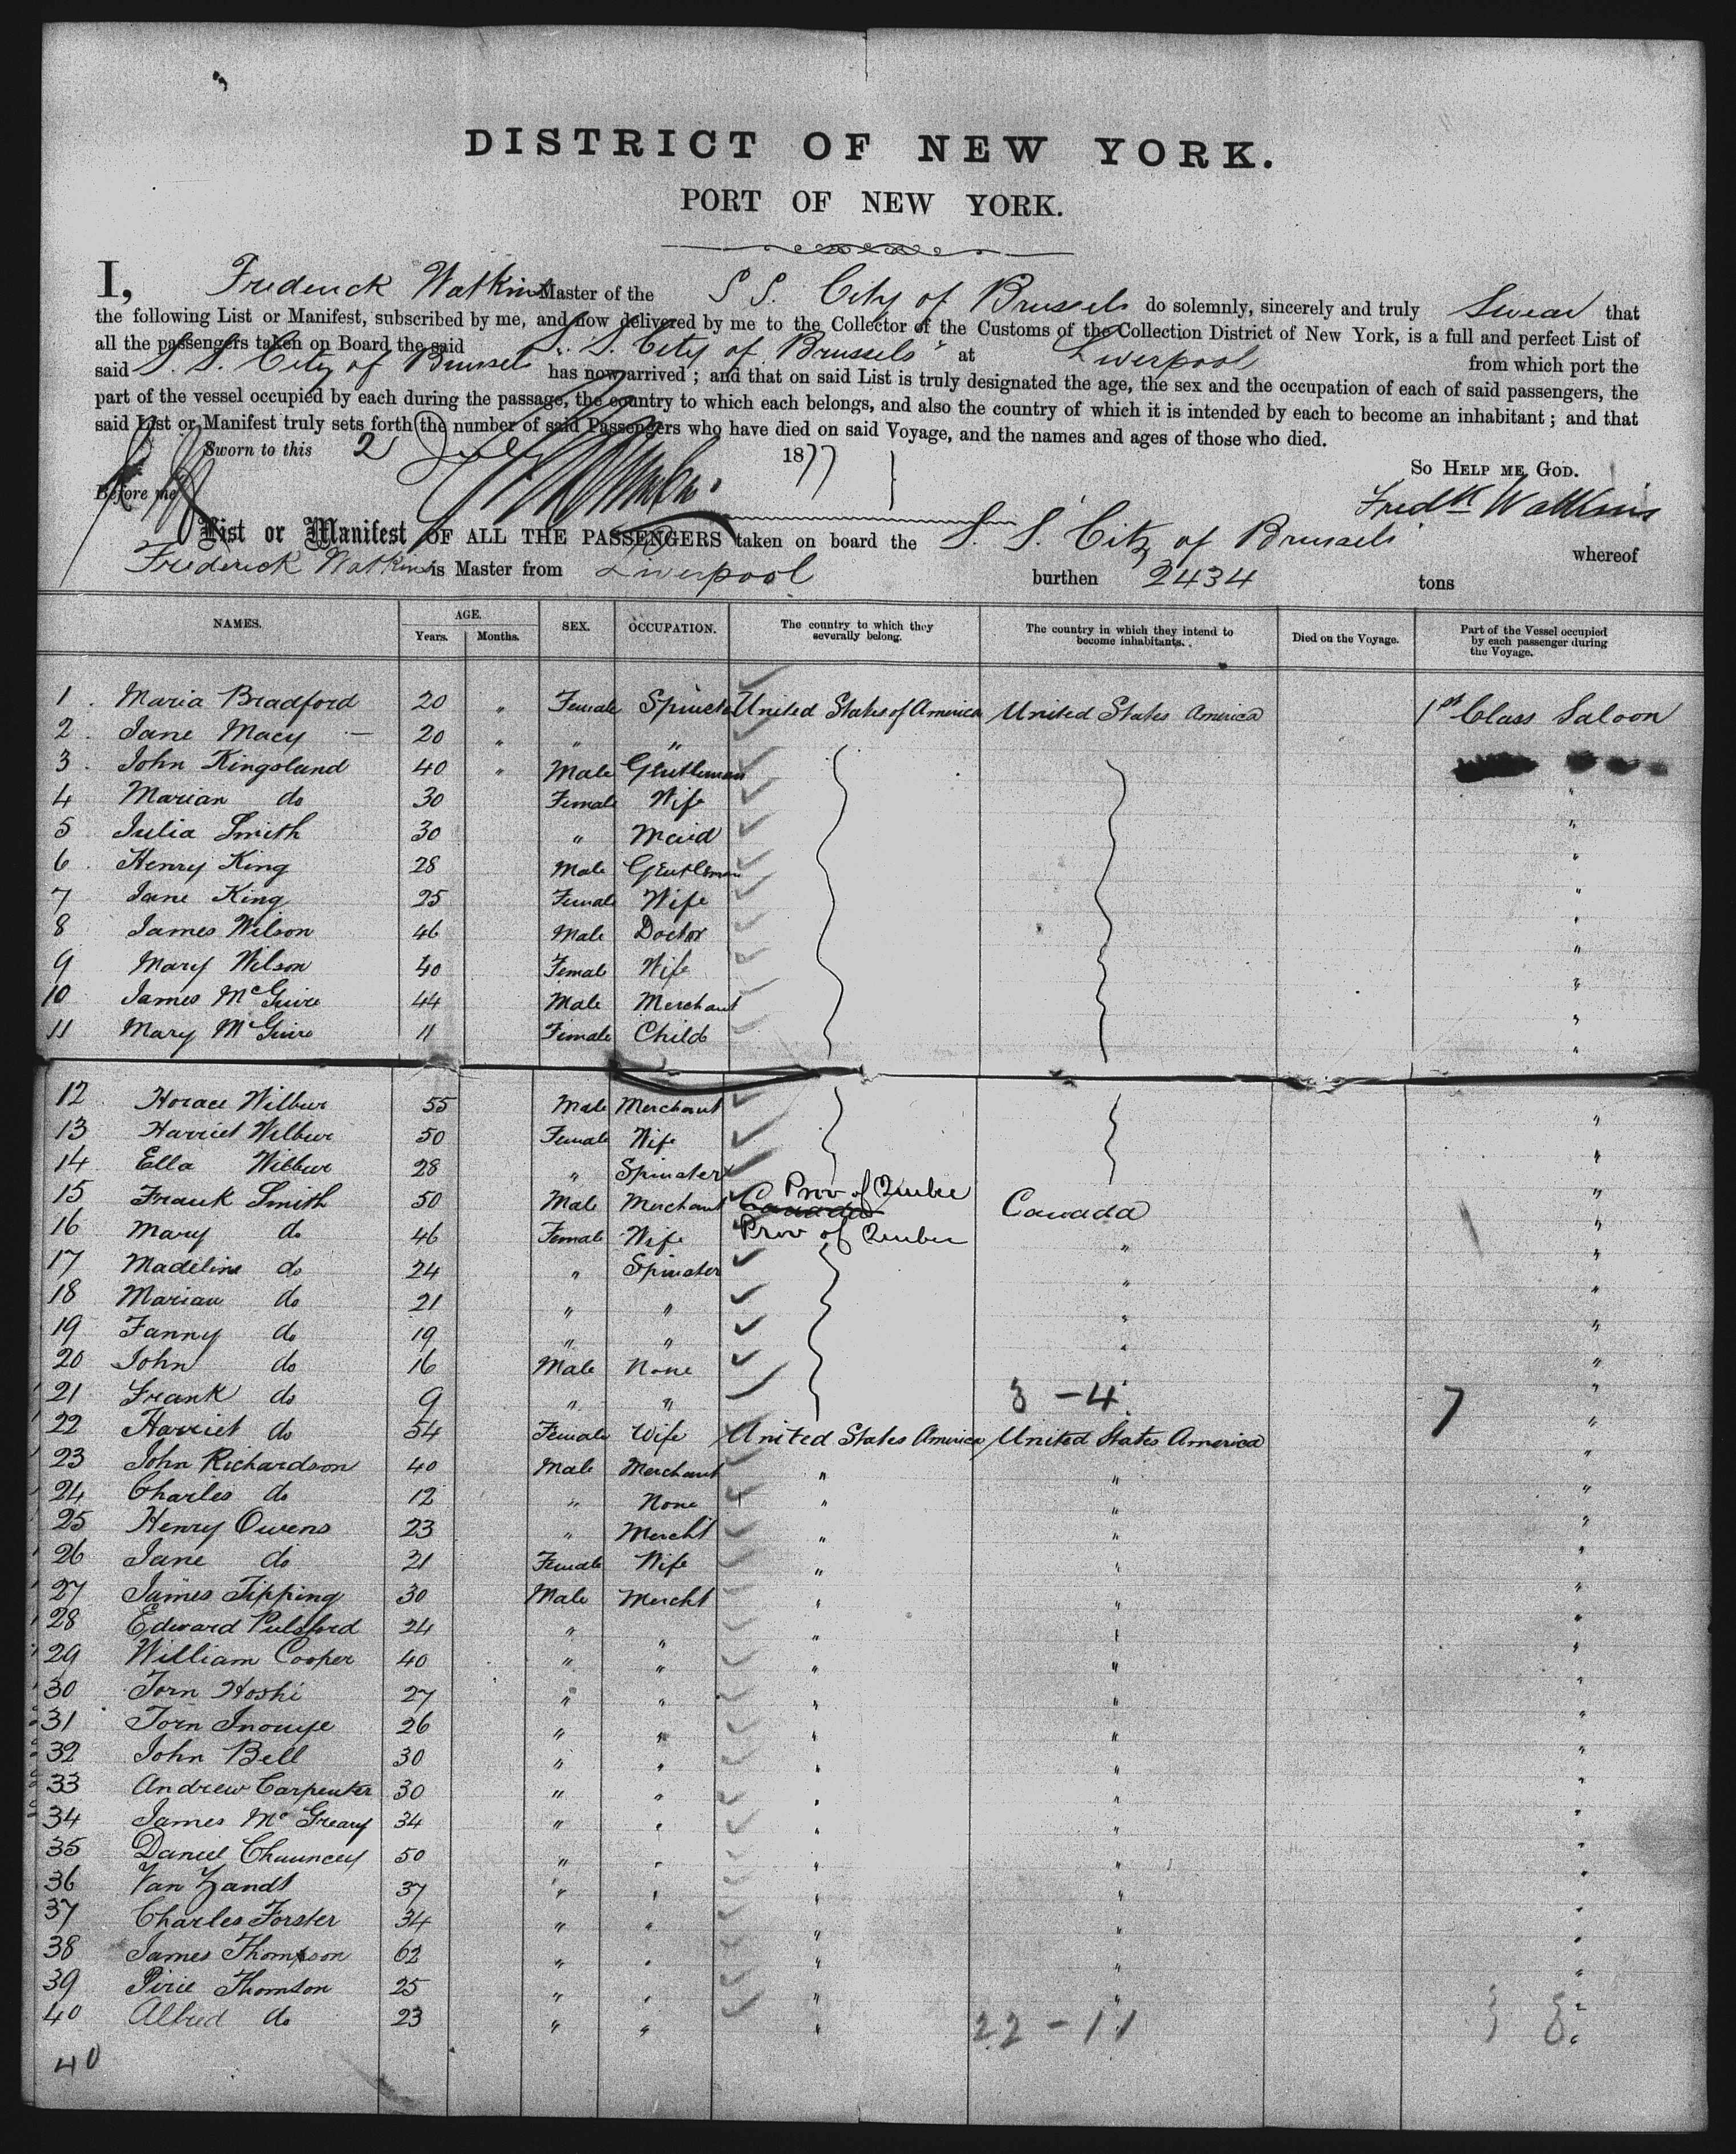 DISTRICT OF NEW YORK.
PORT OF NEW YORK.
I, Frederick Watkins Master of the S S. City of Brussels do solemnly, sincerely and truly Swear that
the following List or Manifest, subscribed by me, and now delivered by me to the Collector of the Customs of the Collection District of New York, is a full and perfect List of
all the passengers taken on Board the said S. S. City of Brussels at Liverpool from which port the
said S. S. City of Brussels has now arrived ; and that on said List is truly designated the age, the sex and the occupation of each of said passengers, the
part of the vessel occupied by each during the passage, the country to which each belongs, and also the country of which it is intended by each to become an inhabitant ; and that
said List or Manifest truly sets forth the number of said Passengers who have died on said Voyage, and the names and ages of those who died.
Sworn to this 2 July 1877
So Help me God.
Before me
Fredk Watkins
List or Manifest OF ALL THE PASSENGERS taken on board the S. S. City of Brussels whereof
Frederick Watkins is Master from Liverpool burthen 2434 tons
NAMES. AGE. Years. Months. SEX. OCCUPATION. The country to which they severally belong. The country in which they intend to become inhabitants. Died on the Voyage. Part of the Vessel occupied by each passenger during the Voyage.
1 . Maria Bradford 20 " Female Spinster United States of America United States America 1st Class Saloon
2 . Jane Macy — 20 " " "
3 . John Kingsland 40 " Male Gentleman
4 Marian do 30 Female Wife "
5 Julia Smith 30 " Maid "
6 . Henry King 28 Male Gentleman "
7 Jane King 25 Female Wife "
8 James Wilson 46 Male Doctor "
9 Mary Wilson 40 Female Wife "
10 James McGuire 44 Male Merchant "
11 Mary McGuire 11 Female Child "
12 Horace Wilbur 55 Male Merchant "
13 Harriet Wilbur 50 Female Wife "
14 Ella Wilbur 28 " Spinster "
15 Frank Smith 50 Male Merchant Canada Prov of Quebec Canada "
16 Mary do 46 Female Wife Prov of Quebec " "
17 Madeline do 24 " Spinster " "
18 Marian do 21 " " " "
19 Fanny do 19 " " " "
20 John do 16 Male None " "
21 Frank do 9 " " 3 - 4 7 "
22 Harriet do 54 Female Wife United States America United States America "
23 John Richardson 40 Male Merchant " " "
24 Charles do 12 " None " " "
25 Henry Owens 23 " Mercht " " "
26 Jane do 21 Female Wife " " "
27 James Tipping 30 Male Mercht " " "
28 Edward Pulsford 24 " " " " "
29 William Cooper 40 " " " " "
30 Torn Hoshi 27 " " " " "
31 Torn Inouye 26 " " " " "
32 John Bell 30 " " " " "
33 Andrew Carpenter 30 " " " " "
34 James McGreary 34 " " " " "
35 Daniel Chauncey 50 " " " " "
36 Van Zandt 37 " " " " "
37 Charles Forster 34 " " " " "
38 James Thompson 62 " " " " "
39 Pirie Thomson 25 " " " " "
40 Alfred do 23 " " " 22 - 11 "
40